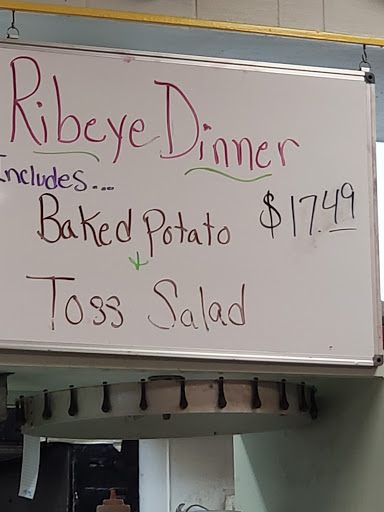 Ribeye Dinner
Includes...
Baked Potato
$17.49
+
Toss Salad